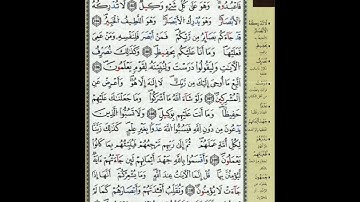 فَاعْبُدُوهُ وَهُوَ عَلَىٰ كُلِّ شَيْءٍ وَكِيلٌ ١٠٢ لَا تُدْرِكُهُ
الْأَبْصَارُ وَهُوَ يُدْرِكُ الْأَبْصَارَ وَهُوَ اللَّطِيفُ الْخَبِيرُ ١٠٣
قَدْ جَاءَكُم بَصَائِرُ مِن رَّبِّكُمْ فَمَنْ أَبْصَرَ فَلِنَفْسِهِ وَمَنْ عَمِيَ
فَعَلَيْهَا وَمَا أَنَا عَلَيْكُم بِحَفِيظٍ ١٠٤ وَكَذَٰلِكَ نُصَرِّفُ
الْآيَاتِ وَلِيَقُولُوا دَرَسْتَ وَلِنُبَيِّنَهُ لِقَوْمٍ يَعْلَمُونَ ١٠٥
اتَّبِعْ مَا أُوحِيَ إِلَيْكَ مِن رَّبِّكَ لَا إِلَٰهَ إِلَّا هُوَ وَأَعْرِضْ عَنِ
الْمُشْرِكِينَ ١٠٦ وَلَوْ شَاءَ اللَّهُ مَا أَشْرَكُوا وَمَا جَعَلْنَاكَ عَلَيْهِمْ
حَفِيظًا وَمَا أَنتَ عَلَيْهِم بِوَكِيلٍ ١٠٧ وَلَا تَسُبُّوا الَّذِينَ
يَدْعُونَ مِن دُونِ اللَّهِ فَيَسُبُّوا اللَّهَ عَدْوًا بِغَيْرِ عِلْمٍ كَذَٰلِكَ زَيَّنَّا
لِكُلِّ أُمَّةٍ عَمَلَهُمْ ثُمَّ إِلَىٰ رَبِّهِم مَّرْجِعُهُمْ فَيُنَبِّئُهُم بِمَا كَانُوا
يَعْمَلُونَ ١٠٨ وَأَقْسَمُوا بِاللَّهِ جَهْدَ أَيْمَانِهِمْ لَئِن جَاءَتْهُمْ آيَةٌ
لَّيُؤْمِنُنَّ بِهَا قُلْ إِنَّمَا الْآيَاتُ عِندَ اللَّهِ وَمَا يُشْعِرُكُمْ أَنَّهَا إِذَا
جَاءَتْ لَا يُؤْمِنُونَ ١٠٩ وَنُقَلِّبُ أَفْئِدَتَهُمْ وَأَبْصَارَهُمْ كَمَا